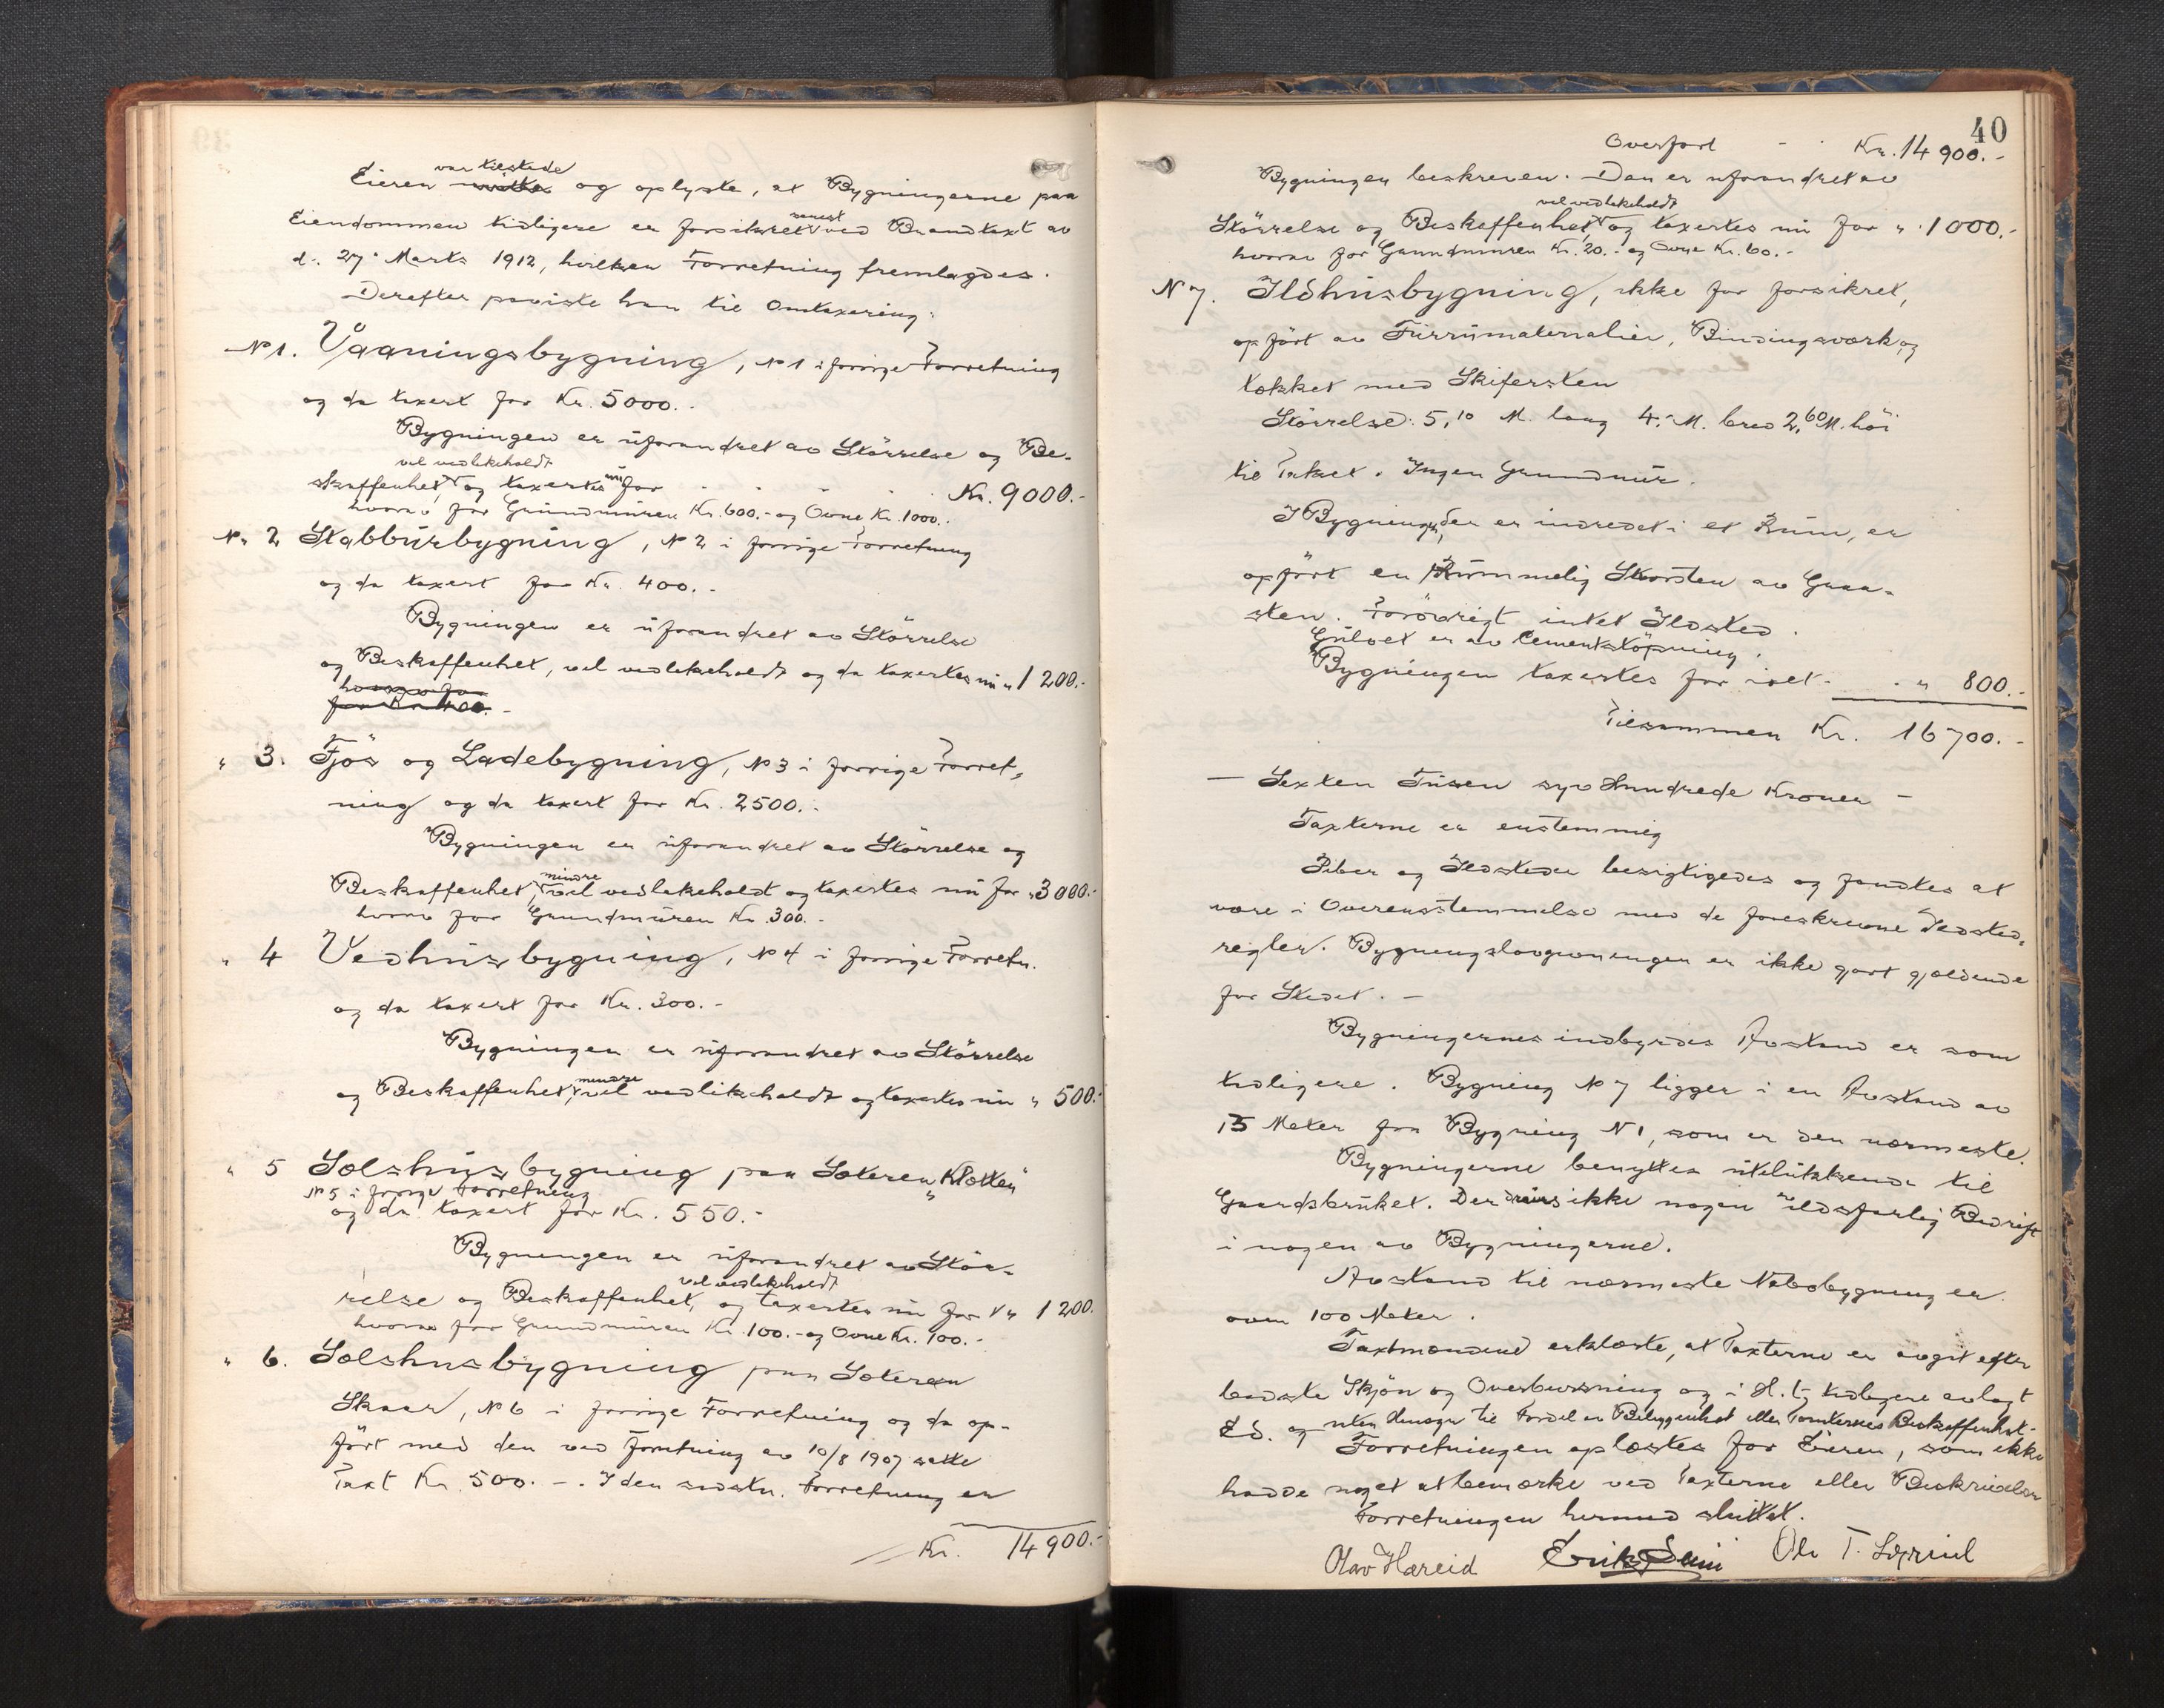 var tilstede
Eieren og oplyste, at Bygningerne paa
Eiendommen tidligere er forsikret senest ved Brandtaxt av
d. 27. Marts 1912, hvilken Forretning fremlagdes.
Derefter paaviste han til Omtaxering:
No 1. Vaaningsbygning, No 1 i forrige Forretning
og da taxert for Kr. 5000.-
Bygningen er uforandret av Størrelse og Be-
vel vedlikeholdt
skaffenhet, og taxertes nu for Kr. 9000.-
hvorav for Grundmuren Kr. 600.- og Ovne Kr. 1000.-
No 2 Stabbursbygning, No 2 i forrige Forretning
og da taxert for Kr. 400.-
Bygningen er uforandret av Størrelse
og Beskaffenhet, vel vedlikeholdt og da taxertes nu " 1200.-
hvorav for
for Kr. 400.-
" 3. Fjös og Ladebygning, No 3 i forrige Forret-
ning og da taxert for Kr. 2500.-
Bygningen er uforandret av Størrelse og
mindre
Beskaffenhet, vel vedlikeholdt og taxertes nu for " 3000.-
hvorav for Grundmuren Kr. 300.-
" 4 Vedhusbygning, No 4 i forrige Forretn.
og da taxert for Kr. 300.-
Bygningen er uforandret av Størrelse
mindre
og Beskaffenhet, vel vedlikeholdt og taxertes nu " 500.-
" 5 Sælshusbygning paa Sæteren "Klotten"
No 5 i forrige Forretning
og da taxert for Kr. 550.-
Bygningen er uforandret av Stör-
vel vedlikeholdt
relse og Beskaffenhet, og taxertes nu for " 1200.
hvorav for Grundmuren Kr. 100.- og Ovne Kr. 100.-
" 6. Sælshusbygning paa Sæteren
Skaar, No 6 i forrige Forretning og da op-
ført med den ved Forretning av 10/8 1907 satte
Taxt Kr. 500.-. I den sidstn. Forretning er
Kr. 14900.-
40
Overført Kr. 14900.-
Bygningen beskreven. Den er uforandret av
vel vedlikeholdt
Størrelse og Beskaffenhet, og taxertes nu for " 1000.-
hvorav for Grundmuren Kr. 20.- og Ovne Kr. 60.-
No 7. Ildhusbygning, ikke før forsikret,
opført av Furrumaterialier, Bindingsværk, og
tækket med Skifersten
Størrelse: 5,10 M. lang 4.- M. bred 2,60 M. høi
til Taket. Ingen Grundmur.
I Bygningen, der er indredet i et Rum, er
opført en Rummelig Skorsten av Graa-
sten. Forøvrigt intet Ildsted.
Gulvet er av Cementstöpning.
Bygningen taxertes for ialt " 800.-
Tilsammen Kr. 16700.-
- Sexten Tusen syv Hundrede Kroner -
Taxterne er enstemmig
Piber og Ildsteder besigtigedes og fandtes at
være i Overensstemmelse med de foreskrevne Ildsted-
regler. Bygningslovgivningen er ikke gjort gjældende
for Stedet. -
Bygningernes indbyrdes Avstand er som
tidligere. Bygning No 7 ligger i en Avstand av
15 Meter fra Bygning No 1, som er den nærmeste.
Bygningerne benyttes utelukkende til
Gaardsbruket. Der drives ikke nogen ildsfarlig Bedrift
i nogen av Bygningerne.
Avstand til nærmeste Nabobygning er
over 100 Meter.
Taxtmændene erklærte, at Taxterne er avgit efter
bedste Skjøn og Overbevisning og i H. t. tidligere avlagt
Ed. og uten Hensyn til Fordel av Beliggenhet eller Tomternes Beskaffenhet.-
Forretningen oplæstes for Eieren, som ikke
hadde noget at bemærke ved Taxterne eller Beskrivelsen
Forretningen hermed sluttet.
Olav Hæreid Erik Ole T.